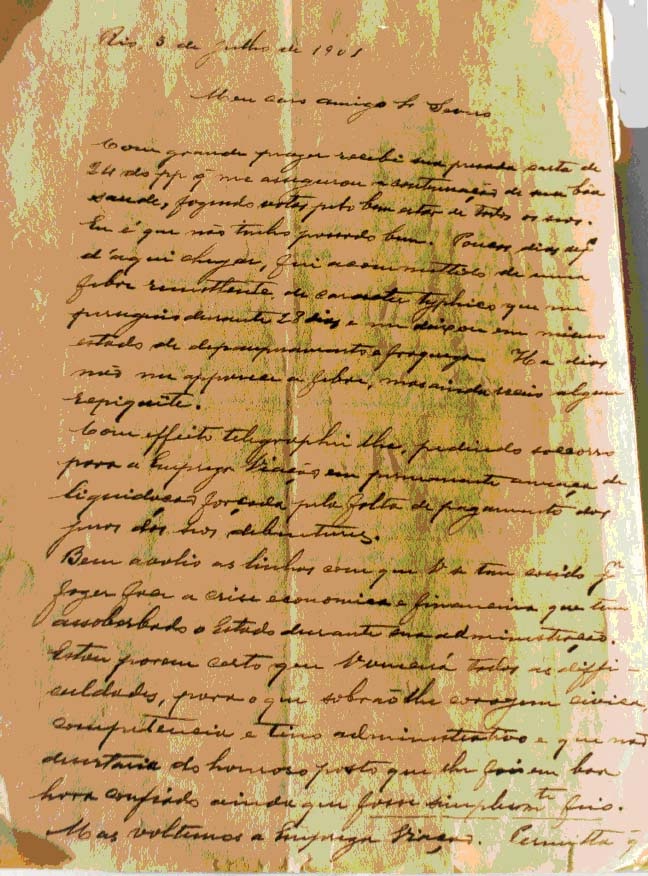 Rio, 3 de Julho de 1901
Meu caro amigo Sr Severo
Com grande prazer recebi sua presada carta de
24 do pp q me assegurou a continuação de sua bôa
saude, fazendo votos pelo bem estar de todos os seus.
Eu é que não tenho passado bem. Poucos dias
d'aqui chegar, fui acommettido de uma
febre remittente de caracter typhico que me
perseguio durante 28 dias e me deixou em
estado de depauperamento e fraqueza. Ha dias
não me apparece a febre, mas ainda receio algum
repiquête.
Com effeito telegraphei lhe, pedindo soccorro
para a Empreza Viação em permanente ameaça de
liquidação forçada pela falta de pagamento dos
juros dos seos debentures.
Bem avalio as linhas com que V. S. tem
fazer face a crise economica e financeira que tem
assoberbado o Estado durante sua administração.
Estou porem certo que vencerá todas as diffi-
culdades, para o que sobrão lhe coragem civica,
competencia e tino administrativo e que não
desertará do honroso posto que lhe foi em boa
hora confiado ainda que fosse simplesmte
Mas voltemos a Empreza Viação. Permitta q